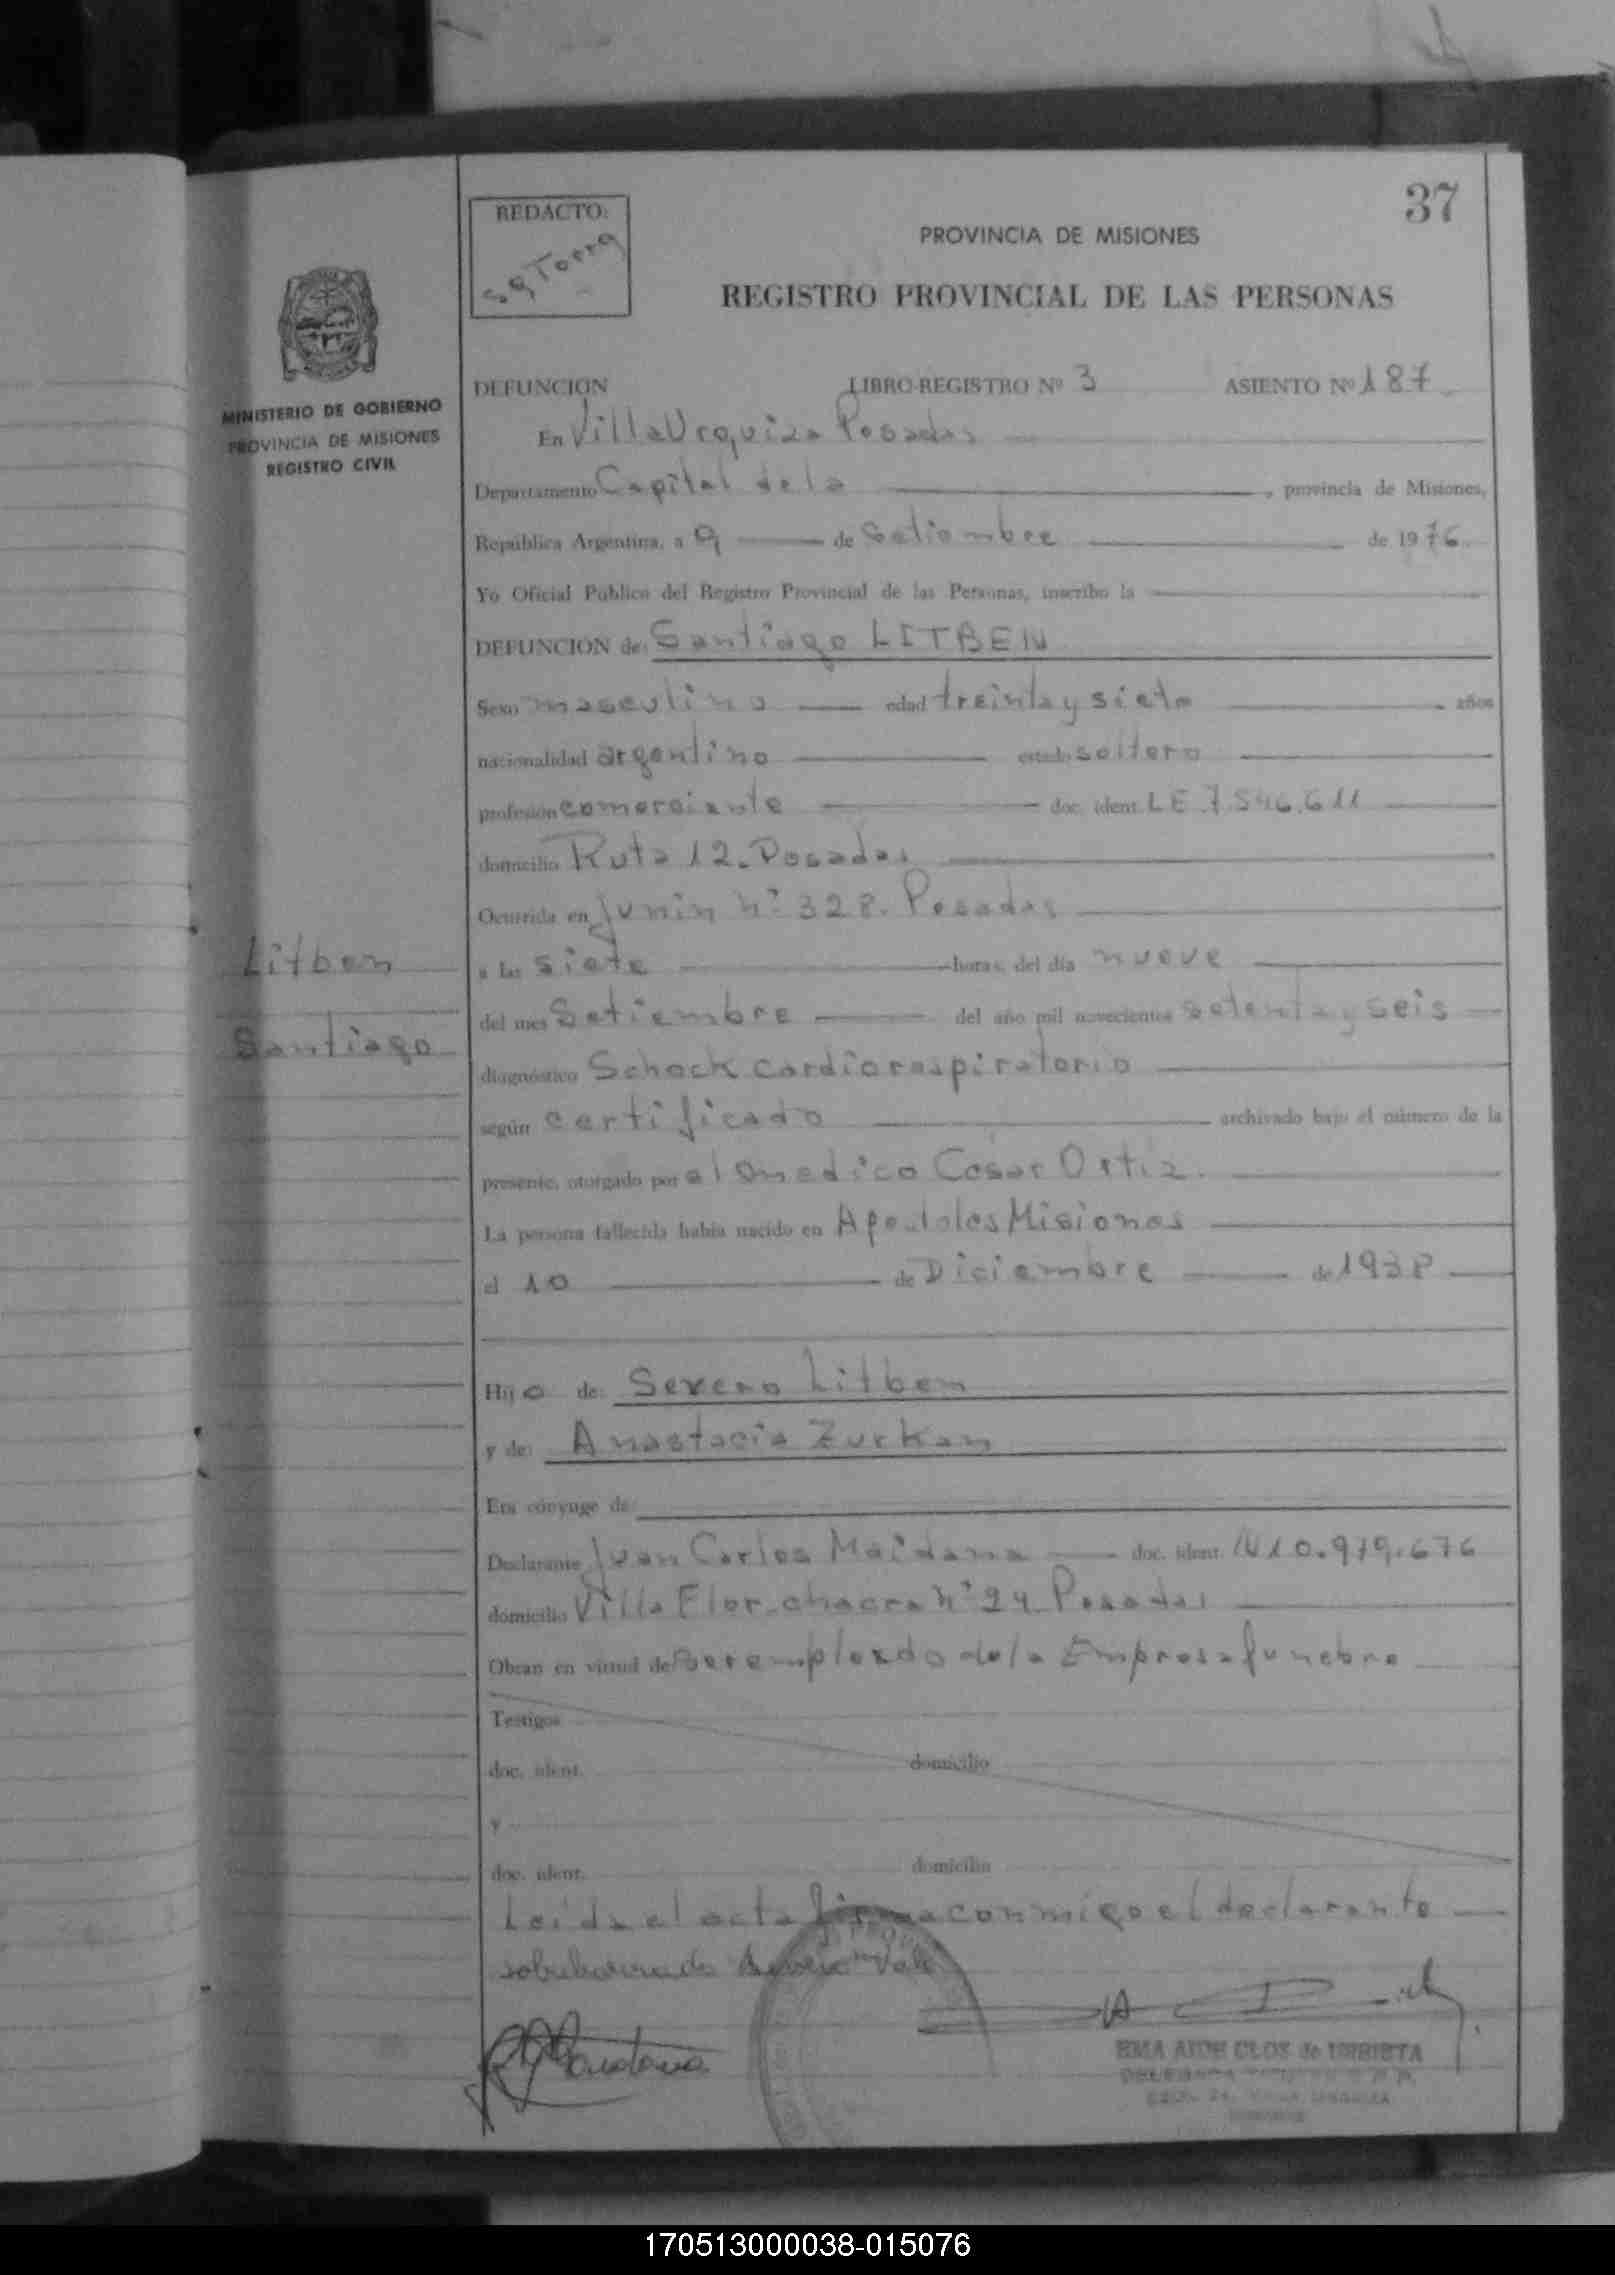 37
REDACTO:
PROVINCIA DE MISIONES
REGISTRO PROVINCIAL DE LAS PERSONAS
MINISTERIO DE GOBIERNO
PROVINCIA DE MISIONES
REGISTRO CIVIL
DEFUNCION LIBRO-REGISTRO Nº 3 ASIENTO Nº 187
En Villa Urquiza Posadas
Departamento Capital de la , provincia de Misiones,
República Argentina, a 9 de Setiembre de 1976.
Yo Oficial Público del Registro Provincial de las Personas, inscribo la
DEFUNCION de: Santiago LITBEN
Sexo masculino edad treinta y siete años
nacionalidad argentino estado soltero
profesión comerciante doc. ident. LE 7.546.611
domicilio Ruta 12. Posadas
Ocurrida en Junin Nº 328. Posadas
a las siete horas, del día nueve
Litben
del mes Setiembre del año mil novecientos setenta y seis
Santiago
diagnóstico Schock cardiorespiratorio
según certificado archivado bajo el número de la
presente, otorgado por el medico Cesar Ortiz.
La persona fallecida había nacido en Apostoles Misiones
el 10 de Diciembre de 1938
Hijo de: Severo Litben
y de: Anastacia Zurkan
Era cónyuge de:
Declarante Juan Carlos Maidana doc. ident. IN 10.979.676
domicilio Villa Flor chacra Nº 24 Posadas
Obran en virtud de ser empleado de la Empresa funebre
Testigos
doc. ident. domicilio
y
doc. ident. domicilio
Leida el acta firma conmigo el declarante
sobreborrado Vale
EMA AIDE CLOS de URRISTA